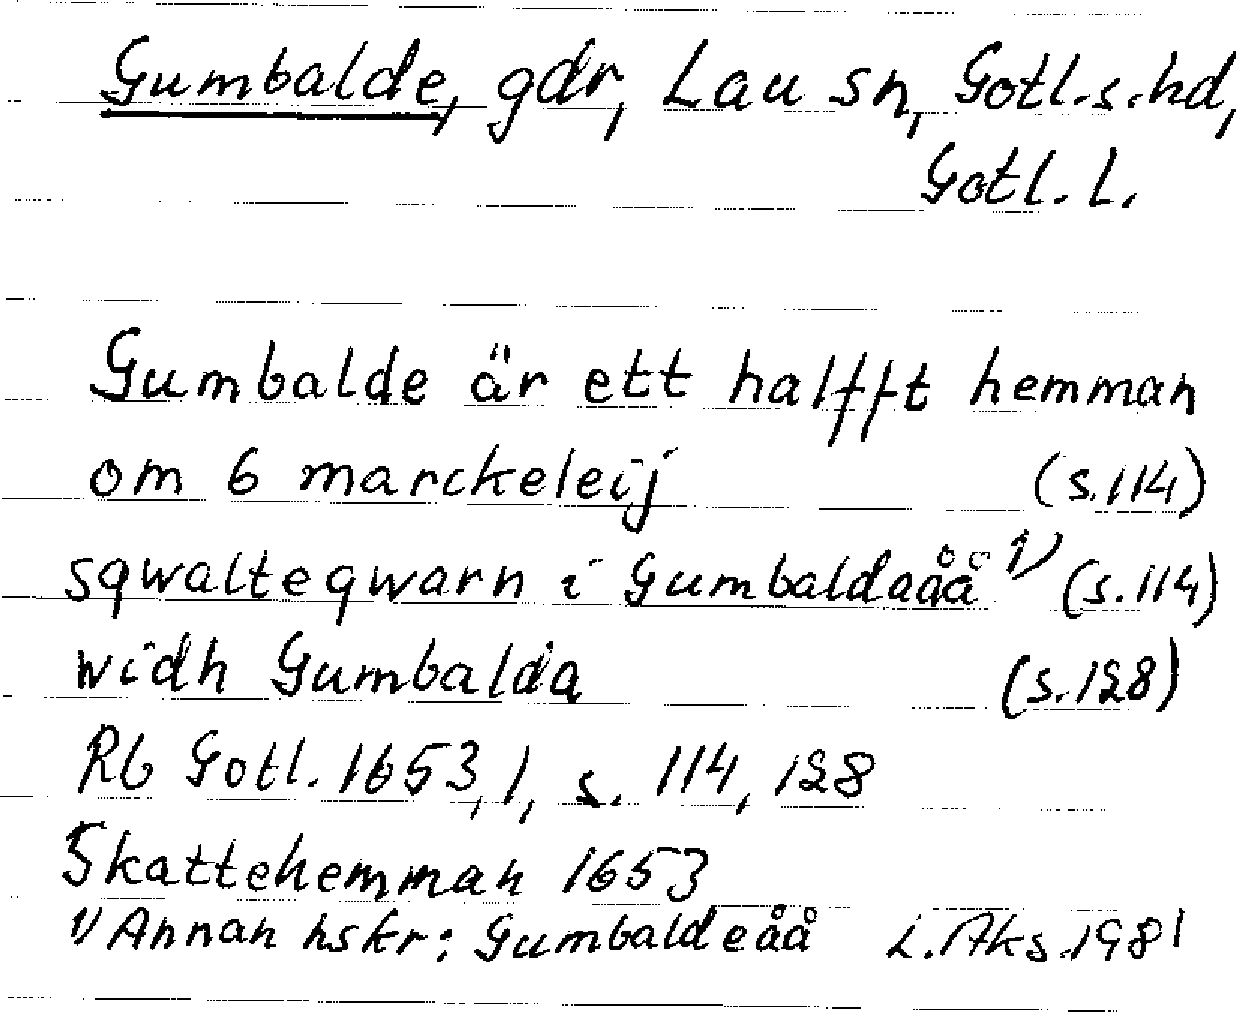 Gumbalde, gdr, Lau sn, Gotl.s.hd,
Gotl. l.
Gumbalde är ett halfft hemman
om 6 marckeleij (s.114)
sqwalteqwarn i Gumbaldaåå 1) (s.114)
widh Gumbalda (s.128)
Rb Gotl. 1653,1, s. 114, 128
Skattehemman 1653
1) Annan hskr: Gumbaldeåå L.Aks.1981